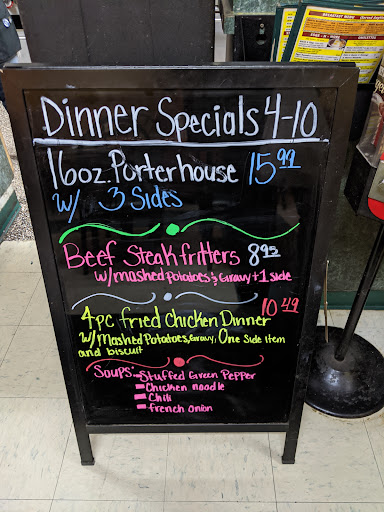 Dinner Specials 4-10
16oz. Porterhouse 15.99
w/ 3 Sides
Beef Steak fritters 8.95
w/mashed Potatoes & Gravy + 1 side
10.49
4pc fried Chicken Dinner
w/Mashed Potatoes, Gravy, One Side item
and biscuit
Soups: - Stuffed Green Pepper
- Chicken noodle
- Chili
- french onion
BREAKFAST MENU